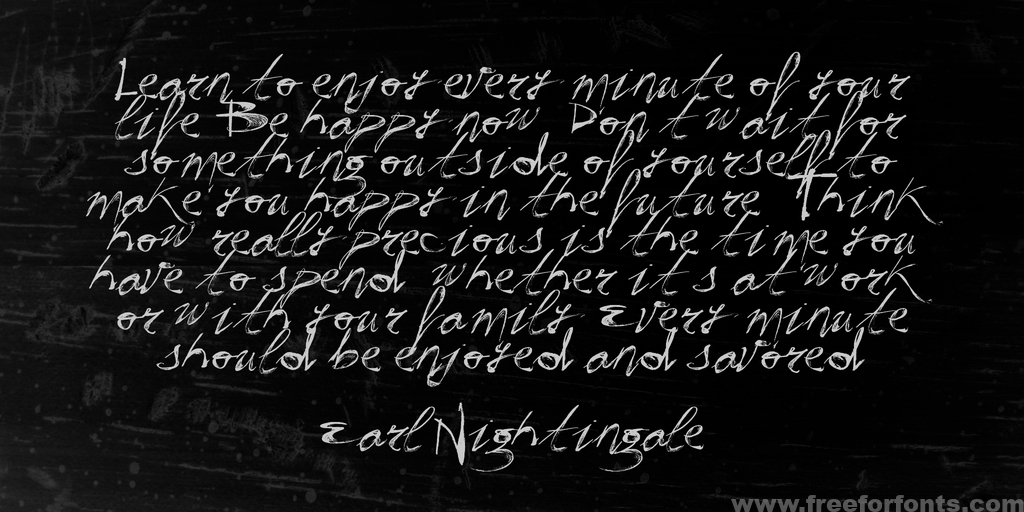 Learn to enjoy every minute of your
life Be happy now Don t wait for
something outside of yourself to
make you happy in the future Think
how really precious is the time you
have to spend whether it s at work
or with your family Every minute
should be enjoyed and savored
Earl Nightingale
www.freeforfonts.com